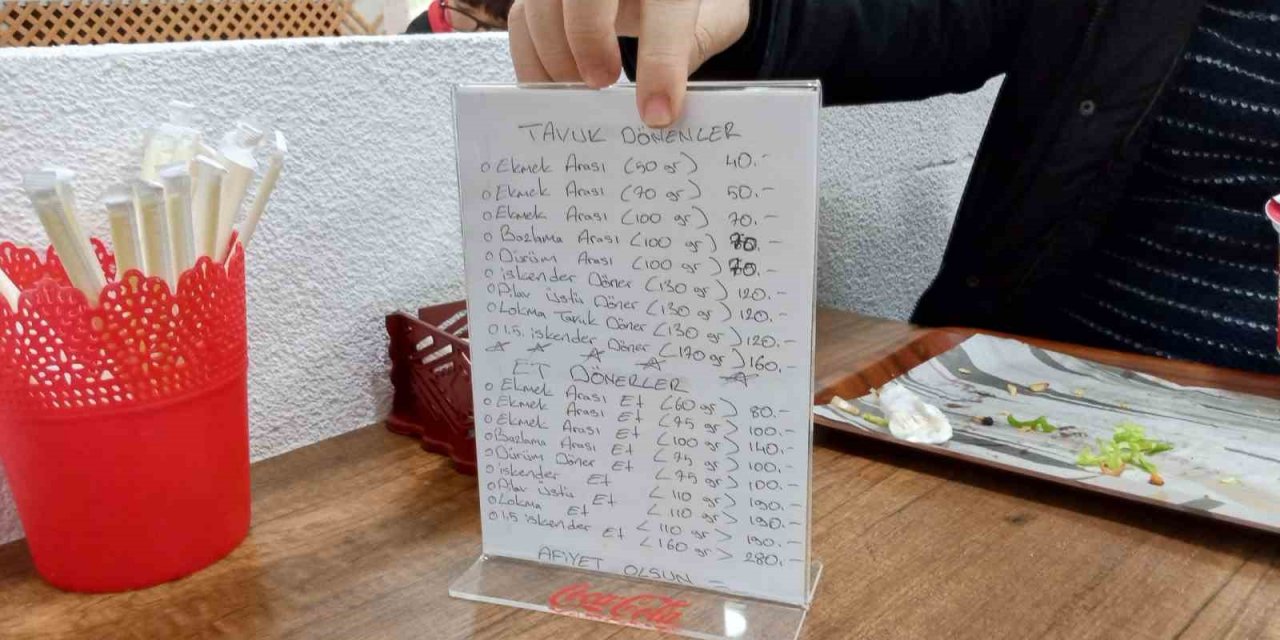 TAVUK DÖNENLER
o Ekmek Arası (50 gr) 40.-
o Ekmek Arası (70 gr) 50.-
o Ekmek Arası (100 gr) 70.-
o Bazlama Arası (100 gr) 70.-
o Dürüm Arası (100 gr) 70.-
o İskender Döner (130 gr) 120.-
o Pilav Üstü Döner (130 gr) 120.-
o Lokma Tavuk Döner (130 gr) 120.-
o 1.5. İskender Döner (170 gr) 160.-
ET DÖNERLER
o Ekmek Arası Et (60 gr) 80.-
o Ekmek Arası Et (75 gr) 100.-
o Ekmek Arası Et (100 gr) 140.-
o Bazlama Arası Et (75 gr) 100.-
o Dürüm Döner Et (75 gr) 100.-
o İskender Et (110 gr) 190.-
o Pilav Üstü Et (110 gr) 190.-
o Lokma Et (110 gr) 190.-
o 1.5 İskender Et (160 gr) 280.-
AFİYET OLSUN
Coca-Cola